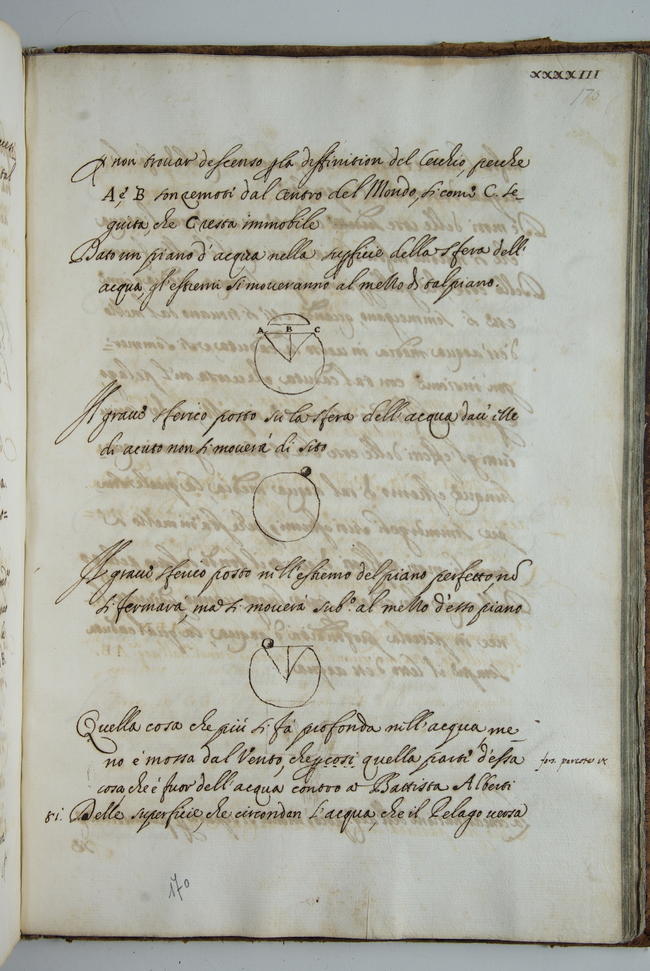 XXXXIII
173
non trouar descenso p̱ la diffinition del Cerchio, perche
A, e B son remoti dal Centro del Mondo, si come C. se-
guita, che C resta immobile
Dato un piano d'acqua nella sup̱ficie della sfera dell'
acqua, gl'estremi si moueranno al mezzo di tal piano.
A B C
Il graue sferico posto su la sfera dell'acqua
di acuto non si mouerà di sito
Il graue sferico posto nell'estremo del piano perfetto nõ
si fermarà, ma si mouerà sub.º al mezzo d'esso piano
Quella cosa che più si fa profonda nell'acqua, me-
no è mossa dal Vento, che p̱cosi quella parte d'essa
cosa che è fuor dell'acqua contro a Battista Alberti
for. percote ix
81. Delle superficie, che circondan l'acqua, che il Pelago uersa
170